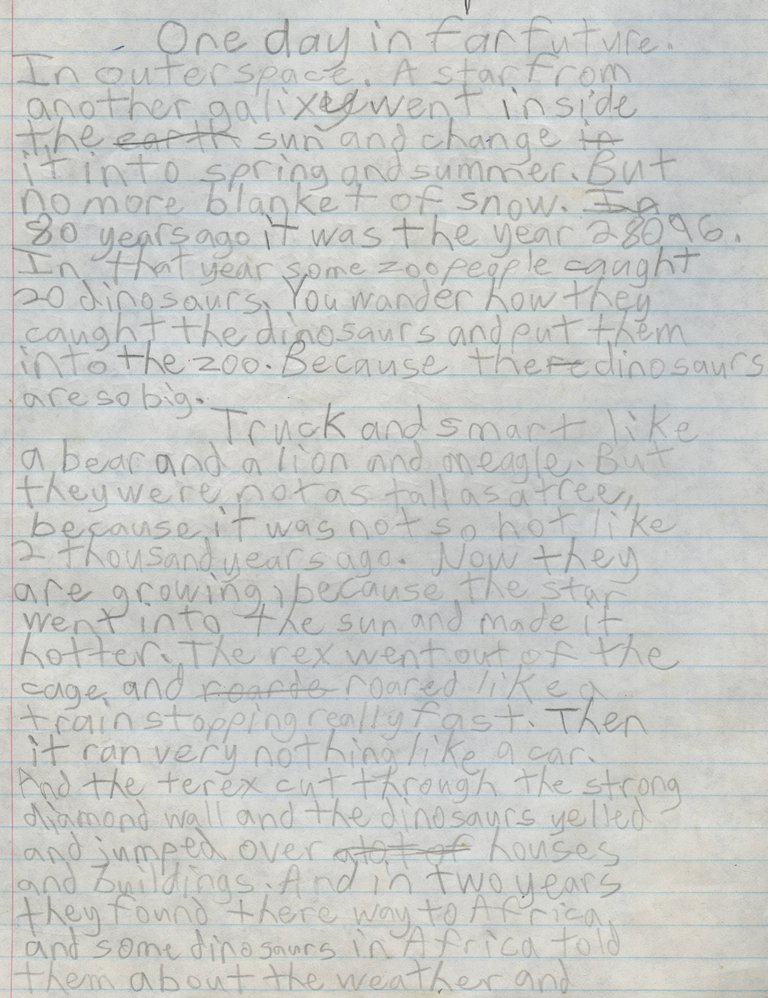 One day in far future.
In outer space. A star from
another galixey went inside
the earth sun and change in
it into spring and summer. But
no more blanket of snow. In a
80 years ago it was the year 28096.
In that year some zoo people caught
20 dinosaurs. You wander how they
caught the dinosaurs and put them
into the zoo. Because there dinosaurs
are so big.
Truck and smart like
a bear and a lion and an eagle. But
they were not as tall as a tree,
because it was not so hot like
2 thousand years ago. Now they
are growing, because the star
went into the sun and made it
hotter. The rex went out of the
cage and roarde roared like a
train stopping really fast. Then
it ran very nothing like a car.
And the terex cut through the strong
diamond wall and the dinosaurs yelled
and jumped over a lot of houses
and buildings. And in two years
they found there way to Africa
and some dinosaurs in Africa told
them about the weather and